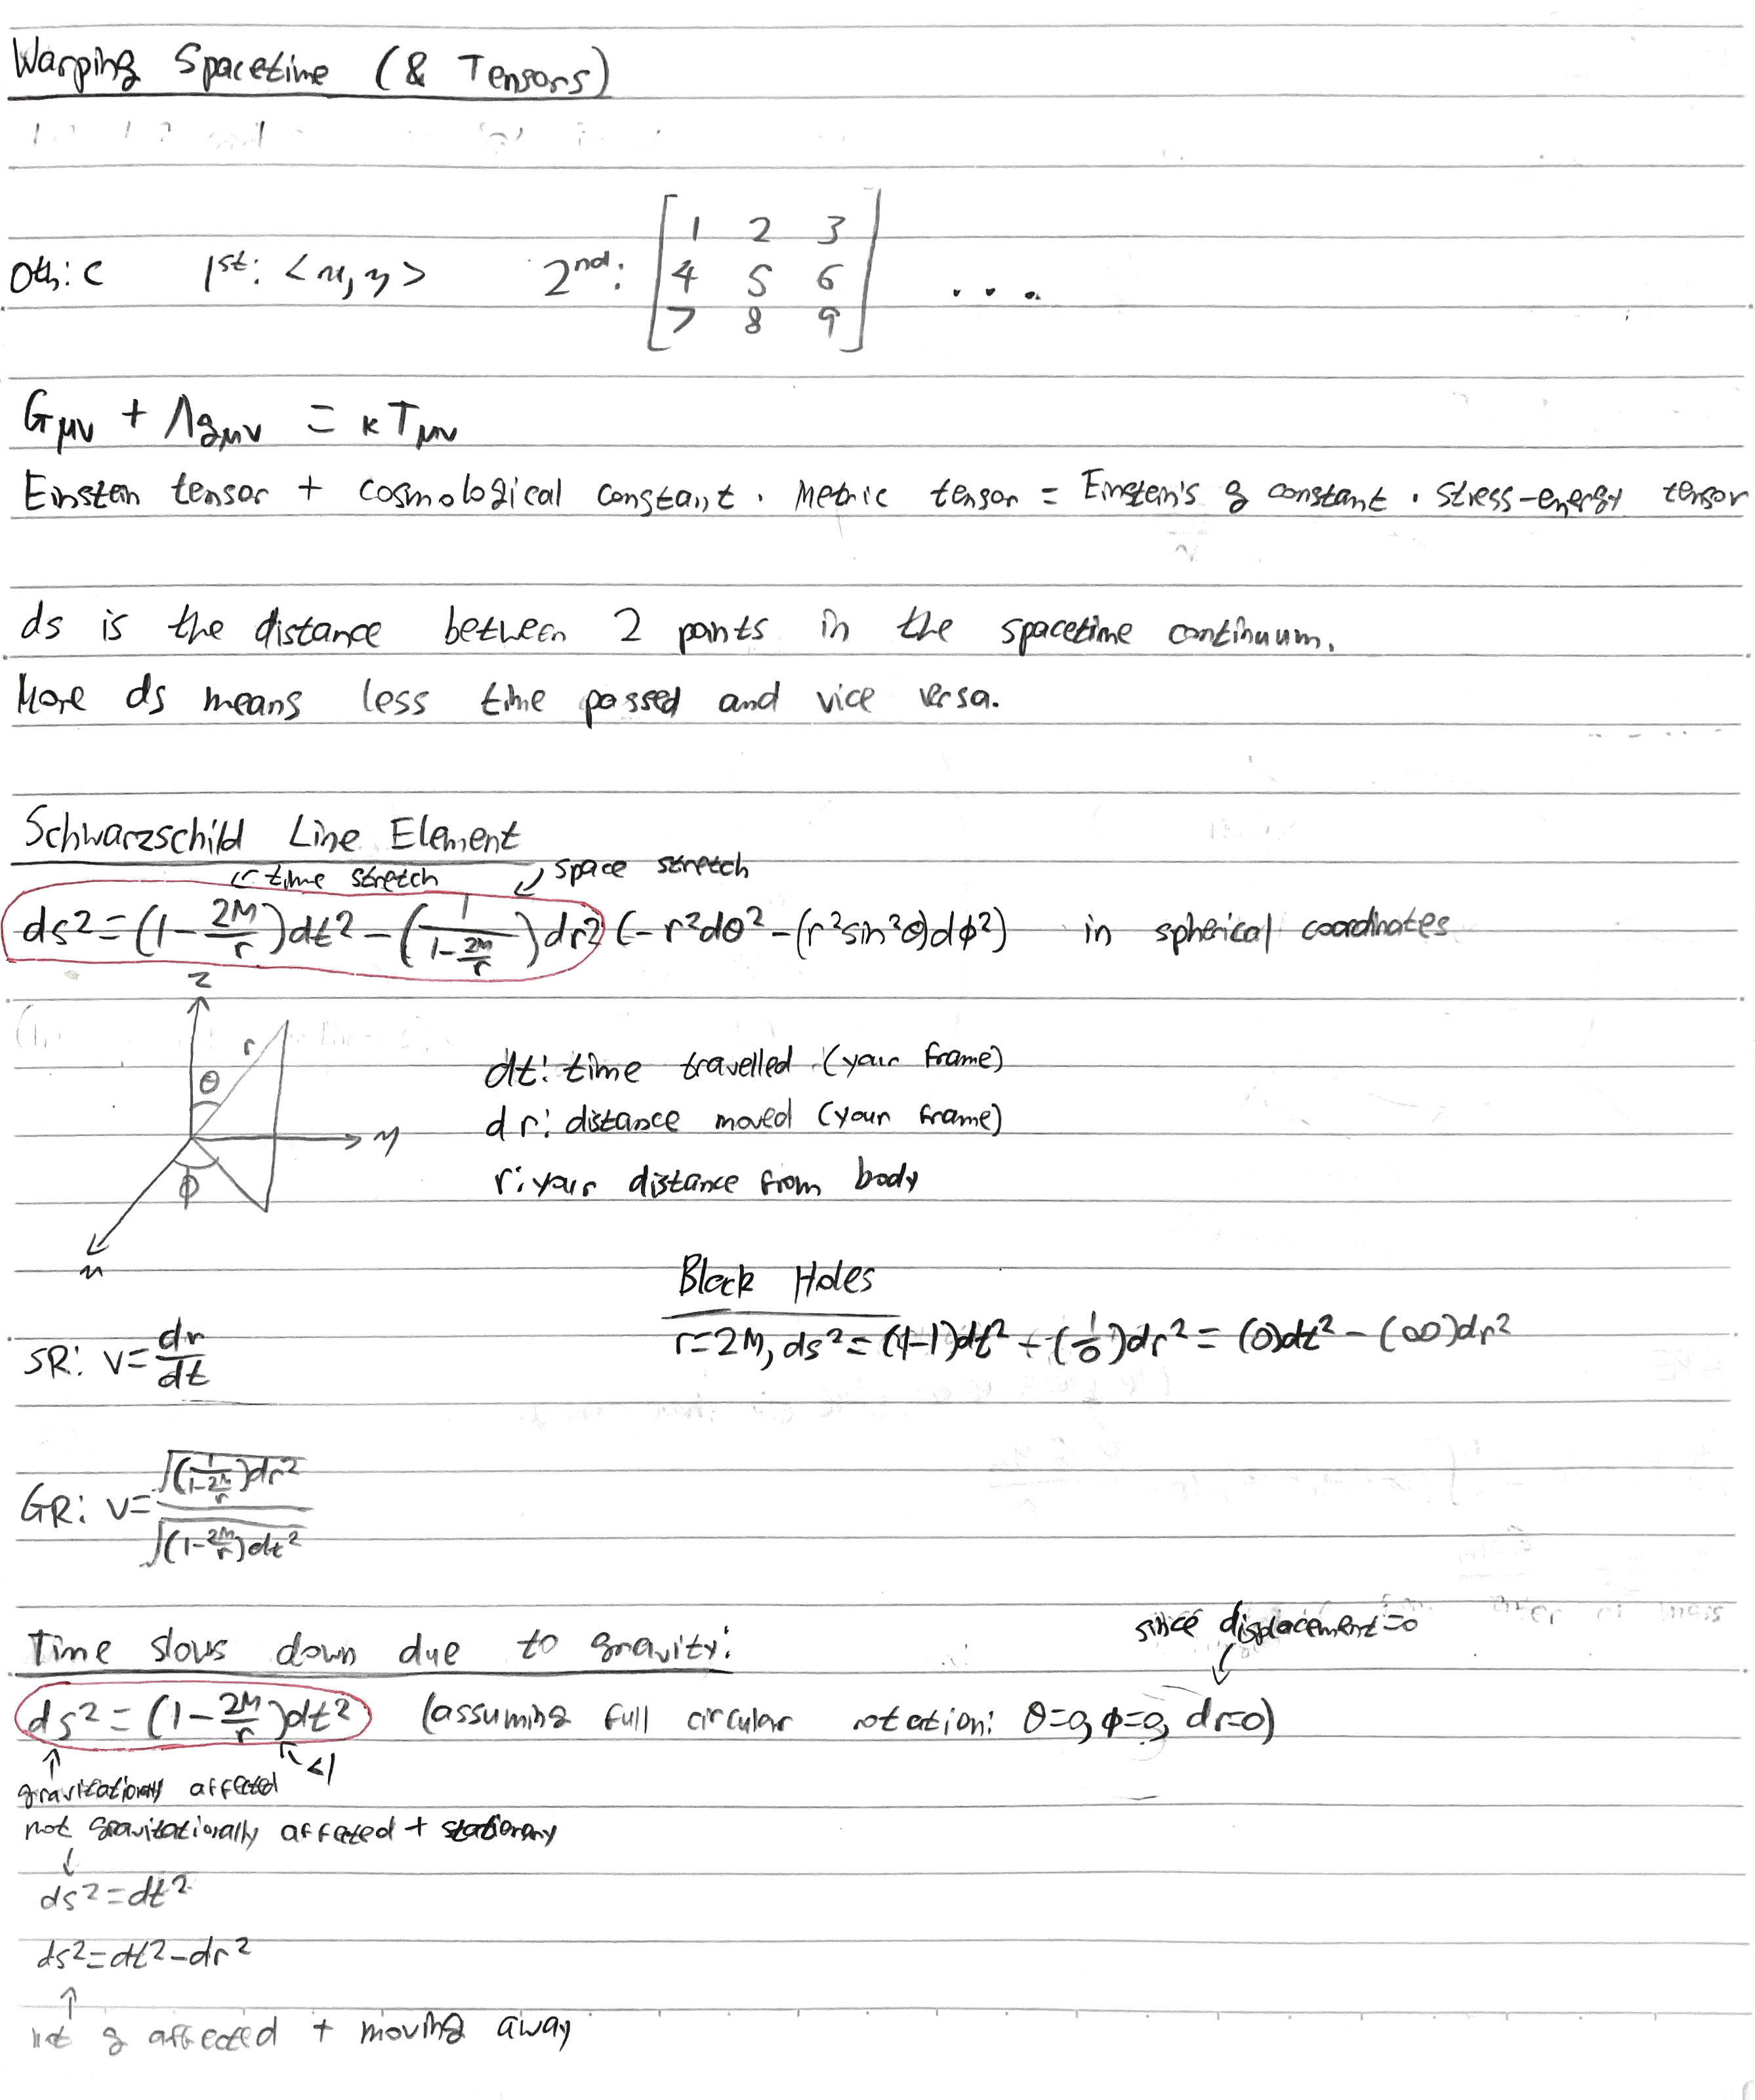 Warping Spacetime (& Tensors)
0th: c 1st: <x, y> 2nd: [1 2 3
4 5 6
7 8 9] ...
Gμν + Λgμν = κTμν
Einstein tensor + cosmological constant · Metric tensor = Einstein's g constant · stress-energy tensor
ds is the distance between 2 points in the spacetime continuum.
More ds means less time passed and vice versa.
Schwarzschild Line Element
time stretch space stretch
ds² = (1 - 2M/r)dt² - (1/(1 - 2M/r))dr² (-r²dθ² - (r²sin²θ)dϕ²) in spherical coordinates
z
r
θ
y
ϕ
x
dt: time travelled (your frame)
dr: distance moved (your frame)
r: your distance from body
Black Holes
r=2M, ds² = (1-1)dt² - (1/0)dr² = (0)dt² - (∞)dr²
SR: v = dr/dt
GR: v = √((1/(1 - 2M/r))dr²) / √((1 - 2M/r)dt²)
since displacement=0
Time slows down due to gravity:
ds² = (1 - 2M/r)dt² (assuming full circular rotation: θ=0, ϕ=0, dr=0)
<1
gravitationally affected
not gravitationally affected + stationary
ds² = dt²
ds² = dt² - dr²
not g affected + moving away